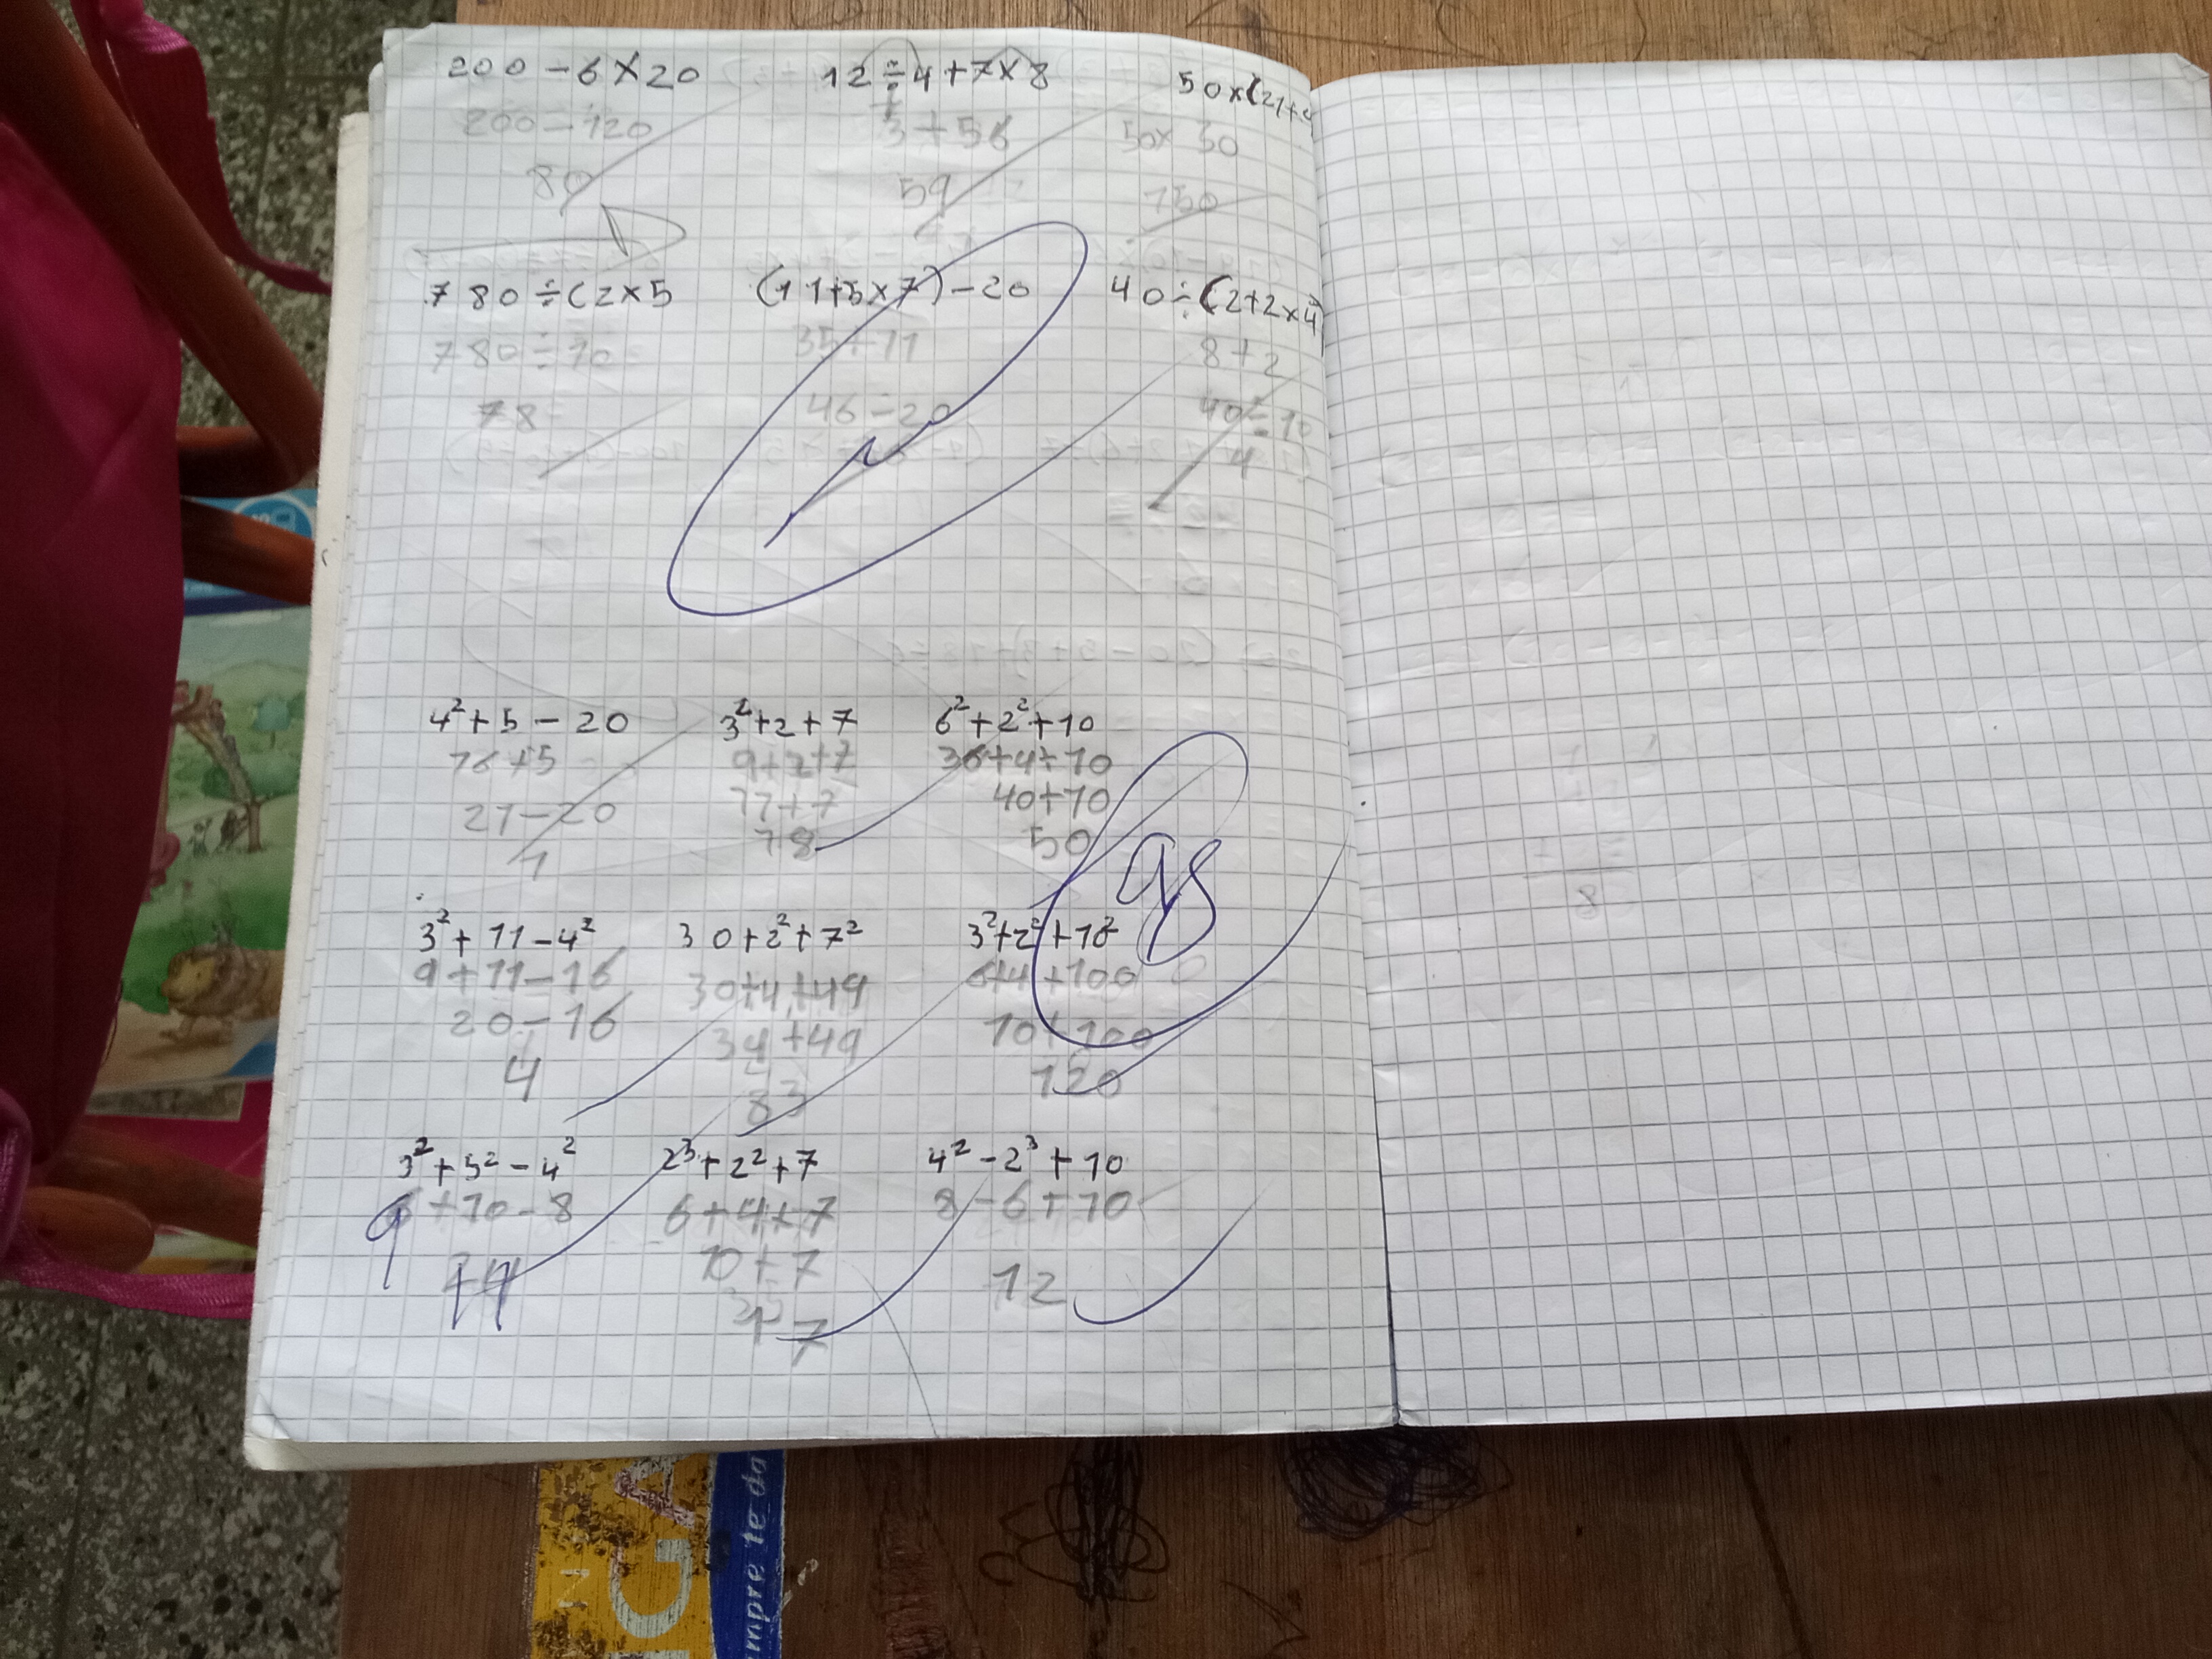 200 - 6 × 20
200 - 120
80
12 ÷ 4 + 7 × 8
3 + 56
59
50 × (21 + 9
50 × 30
150
780 ÷ (2 × 5
780 ÷ 10
78
(11 + 5 × 7) - 20
35 + 11
46 - 20
40 ÷ (2 + 2 × 4
8 + 2
40 ÷ 10
4
4² + 5 - 20
16 + 5
21 - 20
1
3² + 2 + 7
9 + 2 + 7
11 + 7
18
6² + 2² + 10
36 + 4 + 10
40 + 10
50
98
3² + 11 - 4²
9 + 11 - 16
20 - 16
4
30 + 2² + 7²
30 + 4 + 49
34 + 49
83
3² + 2² + 10²
6 + 4 + 100
10 + 100
120
3² + 5² - 4²
9 + 10 - 8
2³ + 2² + 7
6 + 4 + 7
10 + 7
17
4² - 2³ + 10
8 - 6 + 10
12
8
mpre te da